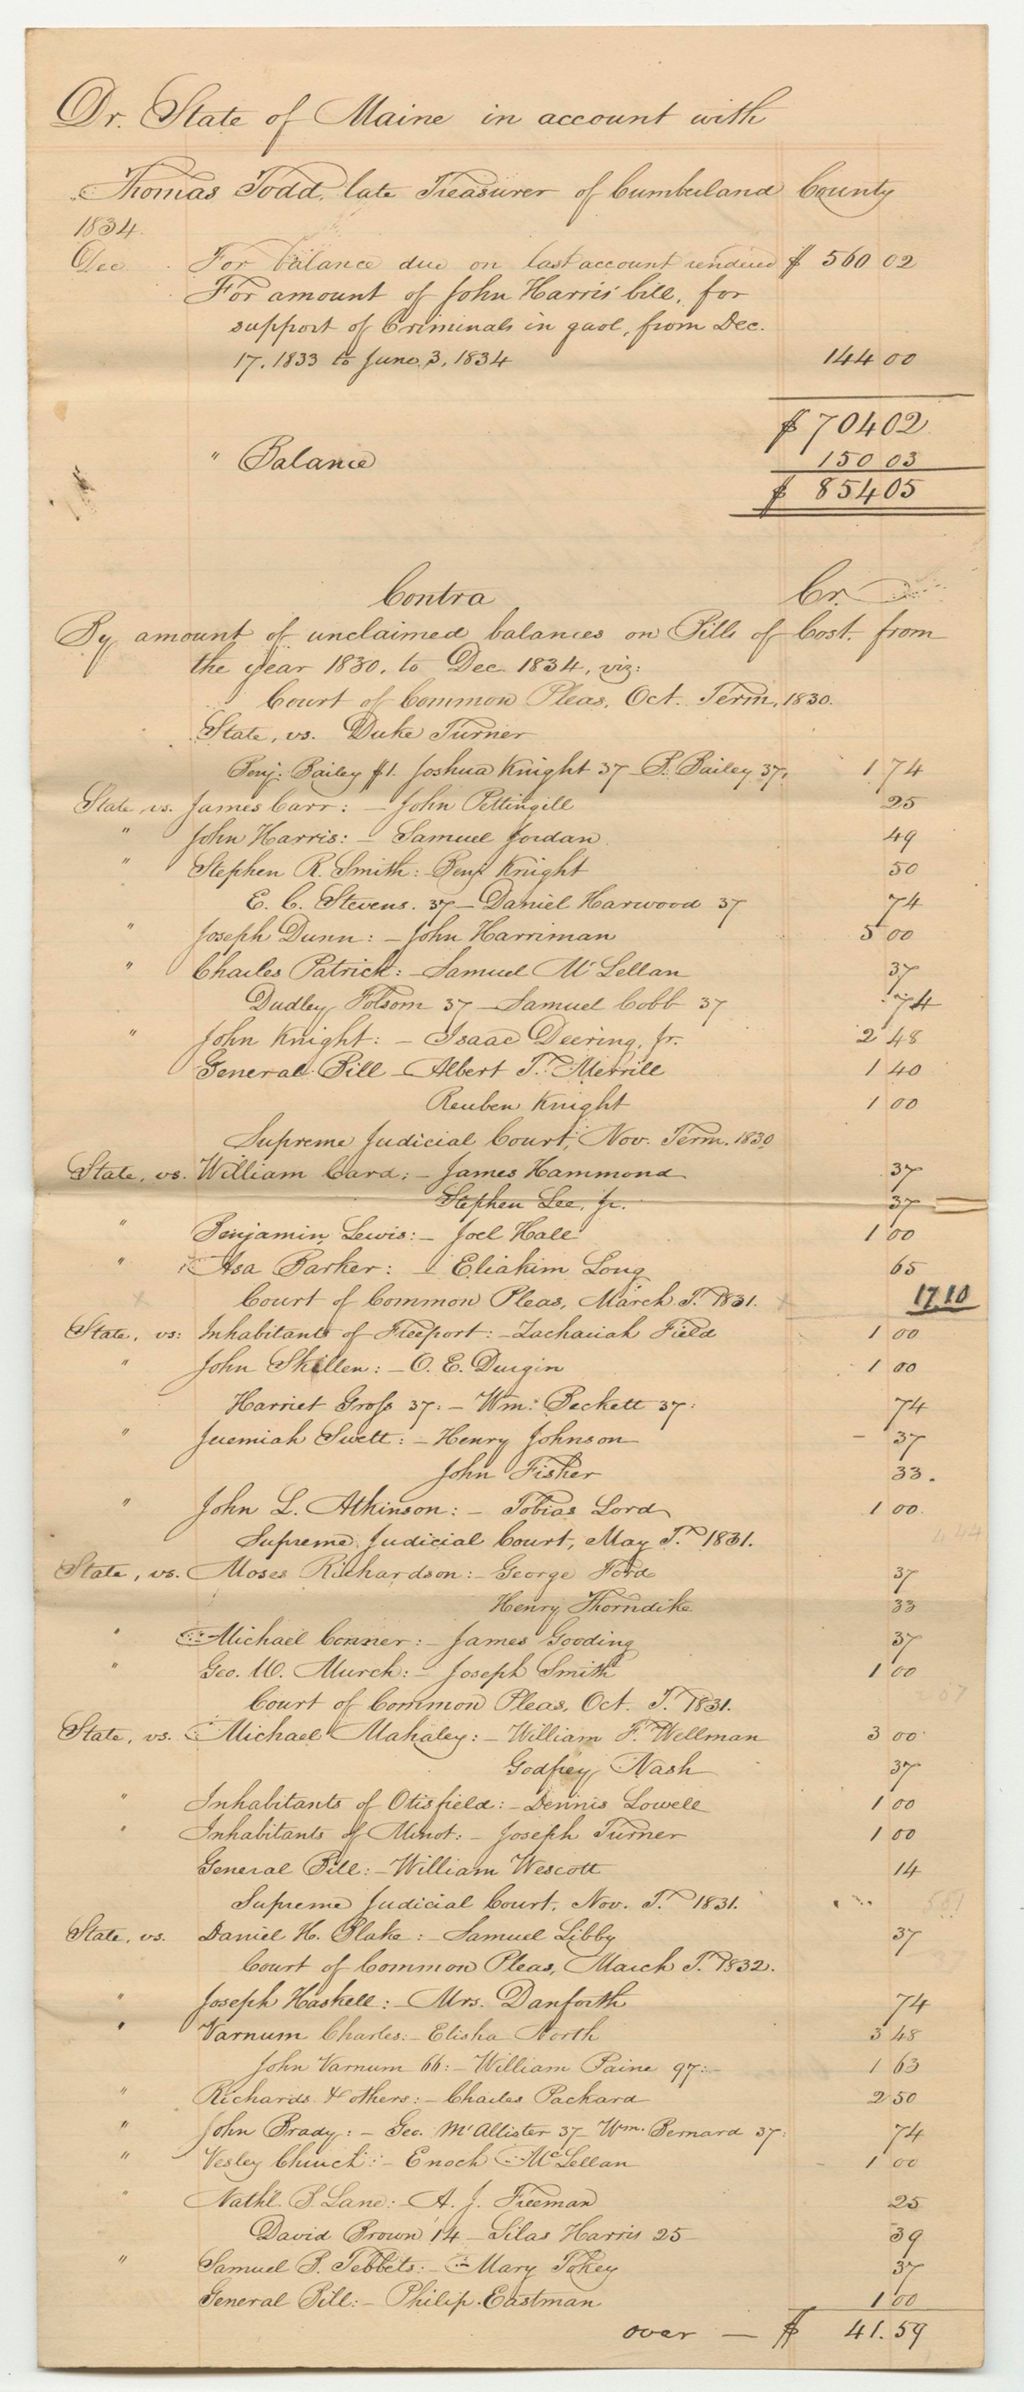 Dr. State of Maine in account with
Thomas Todd, late Treasurer of Cumberland County
1834.
Dec. For balance due on last account rendered $ 560 02
For amount of John Harris' bill, for
support of Criminals in gaol, from Dec.
17, 1833 to June 3, 1834 144 00
$ 704 02
" Balance 150 03
$ 854 05
Contra Cr.
By amount of unclaimed balances on Bills of Cost, from
the year 1830, to Dec. 1834, viz:
Court of Common Pleas, Oct. Term, 1830.
State, vs. Duke Turner
Benj. Bailey $1. Joshua Knight 37 - B. Bailey 37. 1 74
State vs. James Carr: - John Pettingill 25
" John Harris: - Samuel Jordan. 49
" Stephen R. Smith: Benj. Knight 50
E. C. Stevens. 37 - Daniel Harwood 37 74
" Joseph Dunn: - John Harriman 5 00
" Charles Patrick: - Samuel McLellan 37
Dudley Folsom 37 - Samuel Cobb 37 74
" John Knight: - Isaac Deering, Jr. 2 48
General Bill - Albert T. Merrill 1 40
Reuben Knight 1 00
Supreme Judicial Court, Nov. Term. 1830
State, vs. William Card: - James Hammond 37
Stephen Lee, Jr. 37
" Benjamin Lewis: - Joel Hall 1 00
" Asa Barker: - Eliakim Long 65
Court of Common Pleas, March T. 1831. 17.10
State, vs: Inhabitants of Freeport: - Zachariah Field 1 00
" John Skillen: - O. E. Durgin 1 00
Harriet Gross 37: - Wm. Beckett 37: 74
" Jeremiah Swett: - Henry Johnson - 37
John Fisher 33.
" John L. Atkinson: - Tobias Lord 1 00.
Supreme Judicial Court, May T. 1831. 4 44
State, vs. Moses Richardson: - George Ford 37
Henry Thorndike 33
" Michael Conner: - James Gooding 37
" Geo. W. Murch: - Joseph Smith 1 00
Court of Common Pleas, Oct. T. 1831.
State, vs. Michael Mahaley: - William F. Wellman 3 00
Godfrey Nash 37
" Inhabitants of Otisfield: - Dennis Lowell 1 00
" Inhabitants of Minot: - Joseph Turner 1 00
General Bill: - William Wescott 14
Supreme Judicial Court, Nov. T. 1831. 5 51
State, vs. Daniel H. Blake: - Samuel Libby 37
Court of Common Pleas, March T. 1832.
" Joseph Haskell: - Mrs. Danforth 74
" Varnum Charles: - Elisha North 3 48
John Varnum 66: - William Paine 97: - 1 63
" Richards & others: - Charles Packard 2 50
" John Brady: - Geo. McAllister 37 - Wm. Bernard 37: 74
" Vesley Church: - Enoch McLellan 1 00
" Nathl. S. Lane: - A. J. Freeman 25
David Brown 14 - Silas Harris 25 - 39
" Samuel B. Tebbets: - Mary Tokey 37
General Bill: - Philip Eastman 1 00
over - $ 41.59